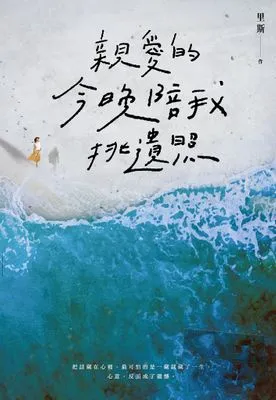 里斯 作
親愛的
今晚陪我
挑遺照
把話藏在心裡，最可怕的是一藏就藏了一生，
心意，反而成了遺憾。